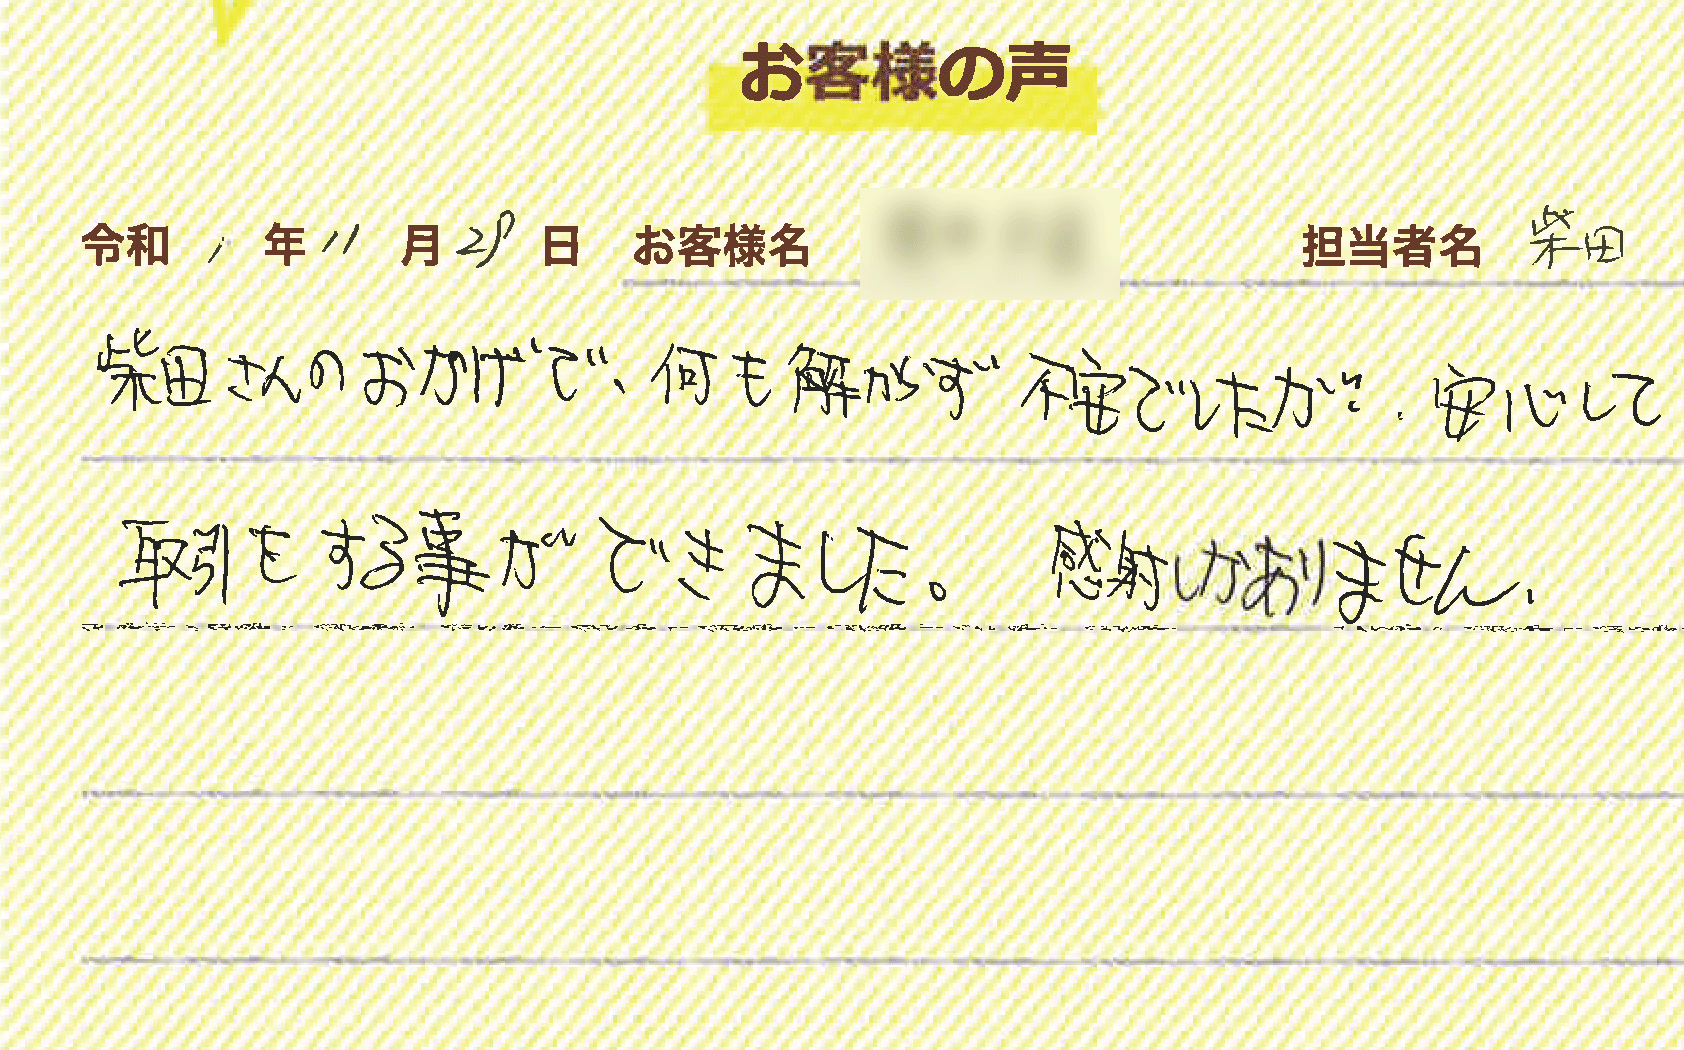 お客様の声
令和 1 年 11 月 29 日 お客様名 担当者名 柴田
柴田さんのおかげで、何も解からず不安でしたが、安心して
取引をする事ができました。 感射しかありません.